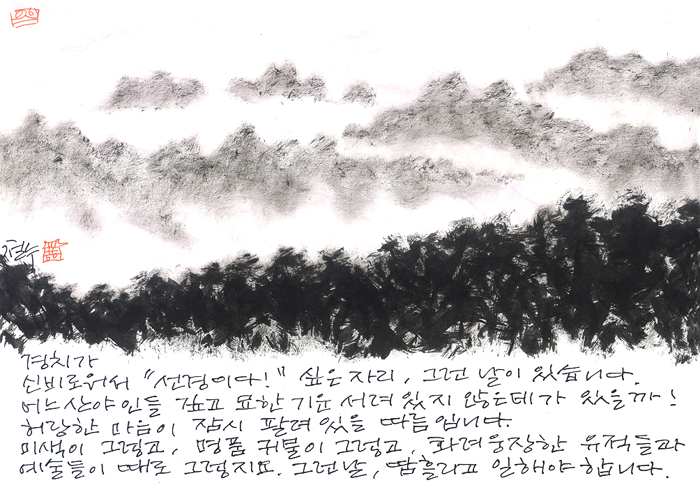 철수
경치가
신비로워서 "선경이다!" 싶은 자리, 그런 날이 있습니다.
어느 산야인들 깊고 묘한 기운 서려 있지 않은데가 있을까!
허랑한 마음이 잠시 팔려 있을 따름입니다.
미색이 그렇고, 명품 귀물이 그렇고, 화려웅장한 유적들과
예술들이 때로 그렇지요. 그런날, 땀흘리고 일해야 합니다.